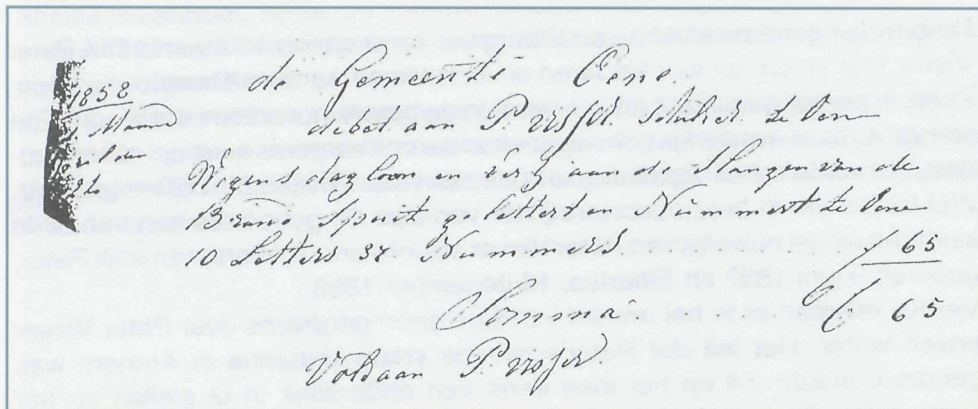 1858
de Gemeente Oene.
debet aan P. Visser
Wegens dagloon en verf aan de slangen en de
Brand Spuit geletterten Nummert te Oene
10 Letters 37 Nummers f " 65
Somma f " 65
Voldaan P. Visser.